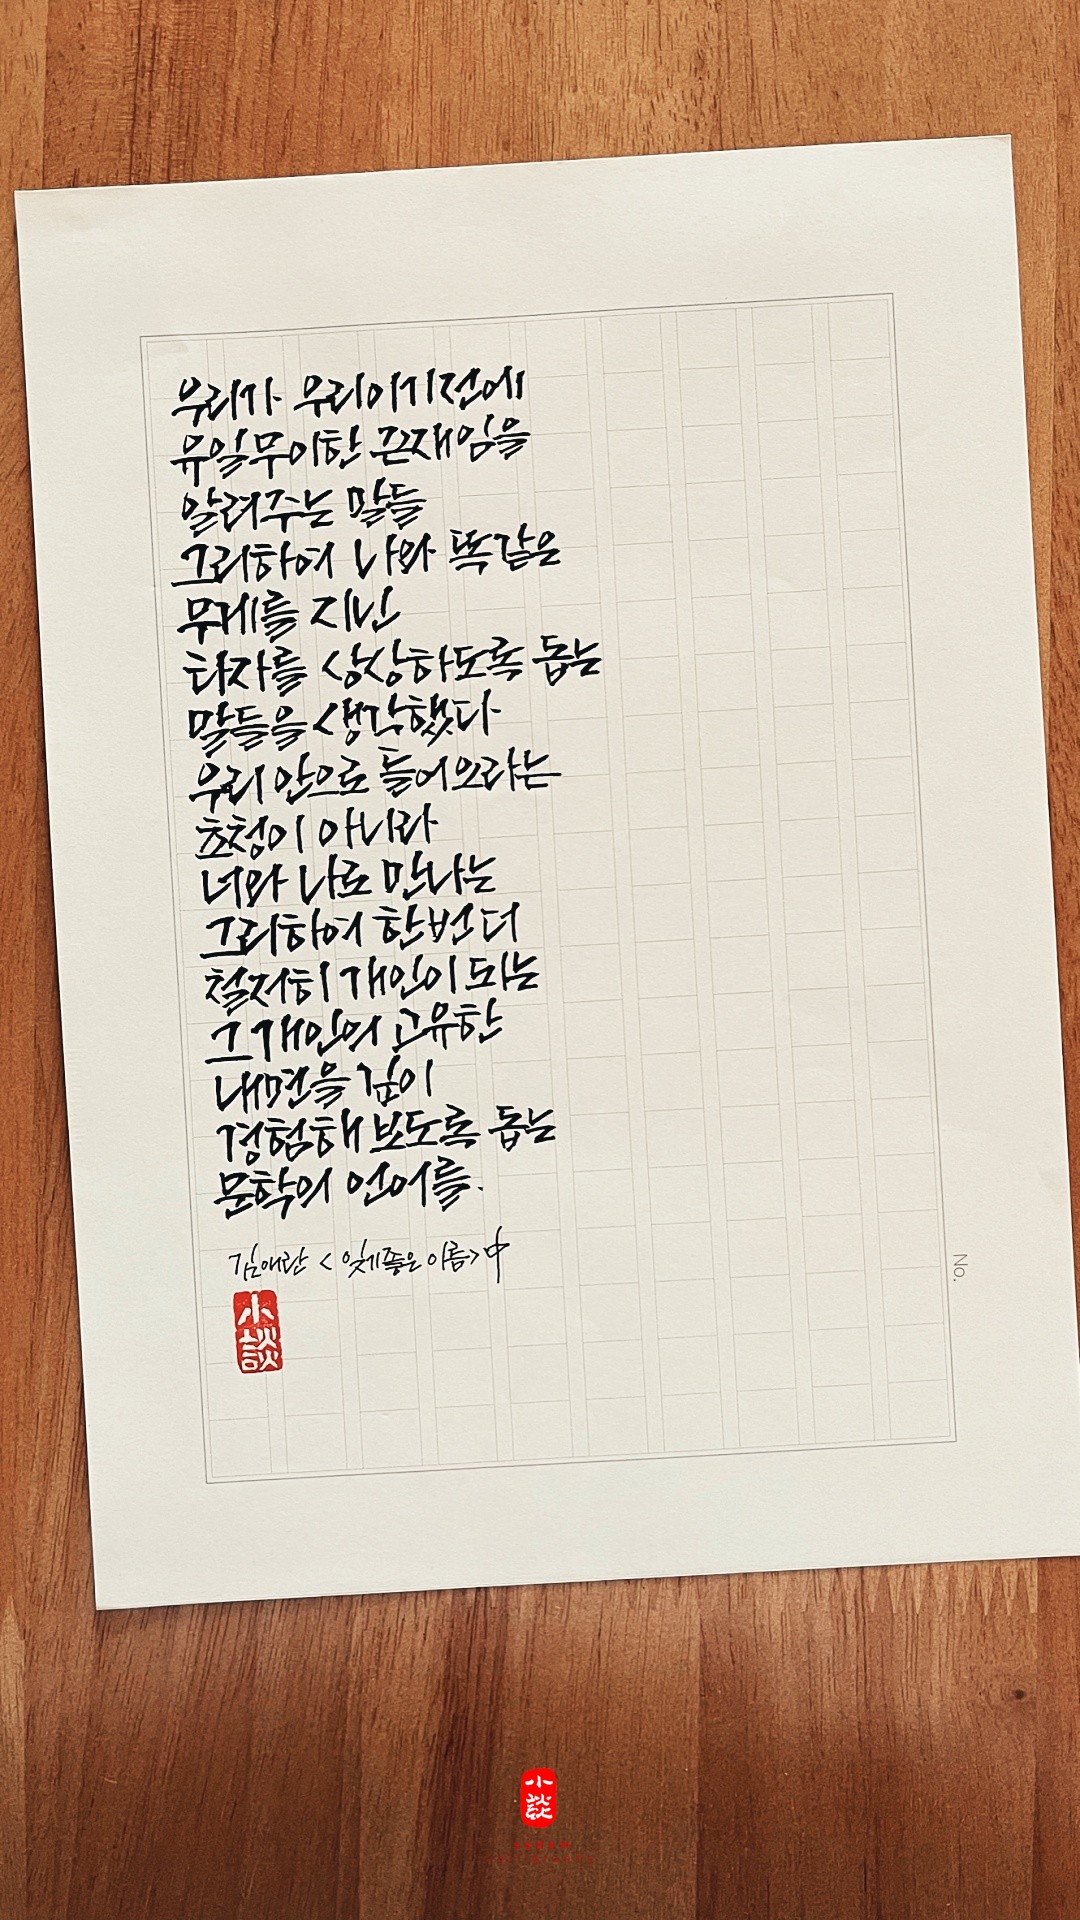 우리가 우리이기 전에
유일무이한 존재임을
알려주는 말들
그리하여 나와 똑같은
무게를 지닌
타자를 상상하도록 돕는
말들을 생각했다
우리 안으로 들어오라는
초청이 아니라
너와 나로 만나는
그리하여 한번 더
철저히 개인이 되는
그 개인의 고유한
내면을 깊이
경험해 보도록 돕는
문학의 언어를.
김애란 <잊기좋은 이름> 中
小
談
No.
小
談